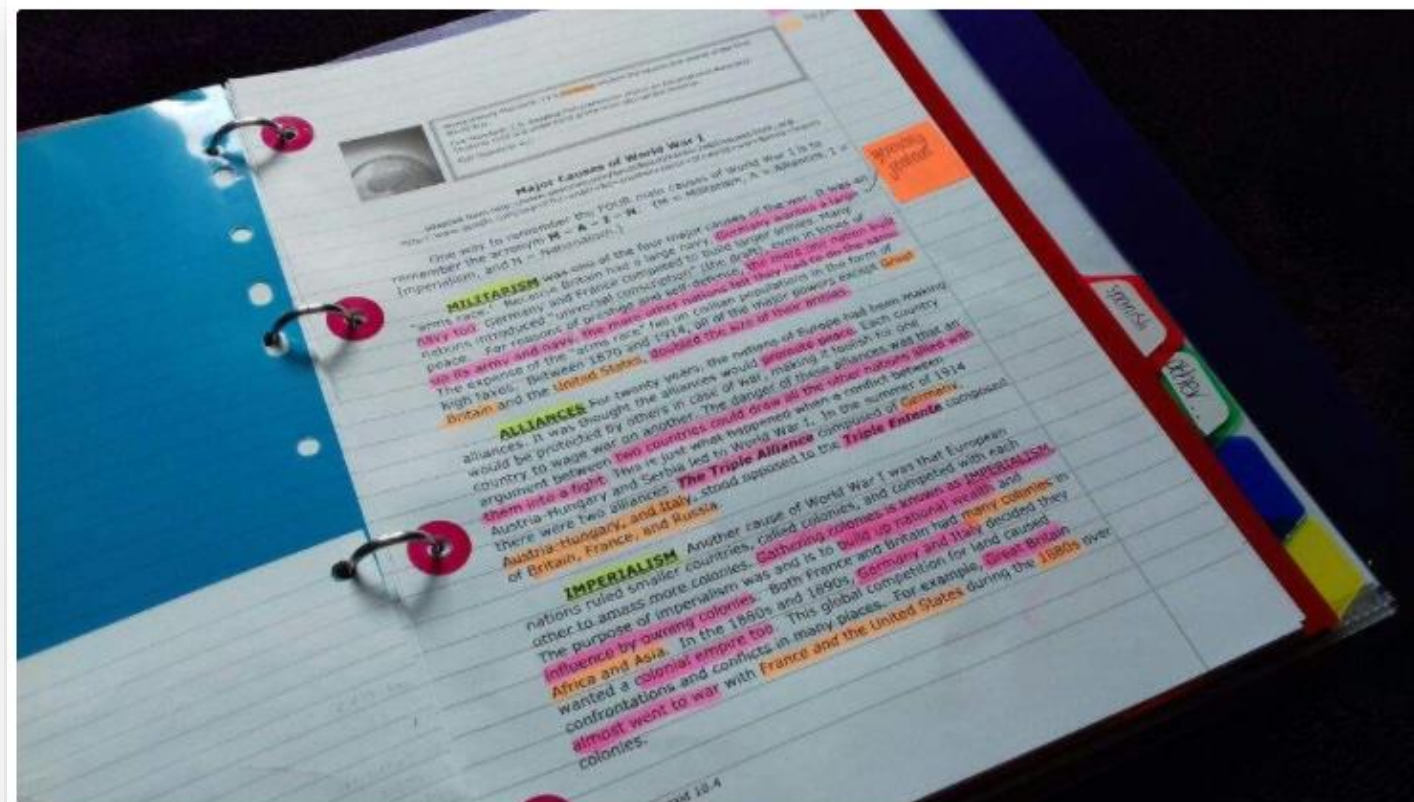 Major Causes of World War I
One way to remember the FOUR main causes of World War I is to
remember the acronym M – A – I – N. (M = Militarism, A = Alliances, I =
Imperialism, and N = Nationalism.)
MILITARISM was one of the four major causes of the war. It was an
"arms race." Because Britain had a large navy, Germany wanted a large
navy too. Germany and France competed to build larger armies. Many
nations introduced "universal conscription" (the draft), even in times of
peace. For reasons of prestige and self-defense, the more one nation built
up its army and navy, the more other nations felt they had to do the same.
The expense of the "arms race" fell on civilian populations in the form of
high taxes. Between 1870 and 1914, all of the major powers except Great
Britain and the United States, doubled the size of their armies.
ALLIANCES For twenty years, the nations of Europe had been making
alliances. It was thought the alliances would promote peace. Each country
would be protected by others in case of war, making it foolish for one
country to wage war on another. The danger of these alliances was that an
argument between two countries could draw all the other nations allied with
them into a fight. This is just what happened when a conflict between
Austria-Hungary and Serbia led to World War I. In the summer of 1914
there were two alliances. The Triple Alliance composed of Germany,
Austria-Hungary, and Italy, stood opposed to the Triple Entente composed
of Britain, France, and Russia.
IMPERIALISM Another cause of World War I was that European
nations ruled smaller countries, called colonies, and competed with each
other to amass more colonies. Gathering colonies is known as IMPERIALISM.
The purpose of imperialism was and is to build up national wealth and
influence by owning colonies. Both France and Britain had many colonies in
Africa and Asia. In the 1880s and 1890s, Germany and Italy decided they
wanted a colonial empire too. This global competition for land caused
confrontations and conflicts in many places. For example, Great Britain
almost went to war with France and the United States during the 1880s over
colonies.
10.4
spanish
other...